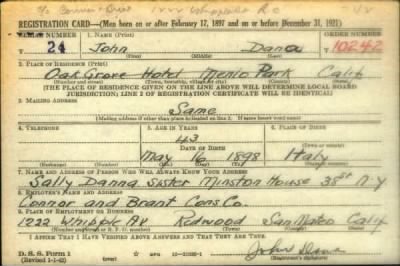 c/o Connor + Brant 1222 Whipple R.C.
REGISTRATION CARD—(Men born on or after February 17, 1897 and on or before December 31, 1921)
SERIAL NUMBER 1. NAME (Print) ORDER NUMBER
24 John Dana 10242
(First) (Middle) (Last)
2. PLACE OF RESIDENCE (Print)
Oak Grove Hotel Menlo Park Calif
(Number and street) (Town, township, village, or city) (County) (State)
[THE PLACE OF RESIDENCE GIVEN ON THE LINE ABOVE WILL DETERMINE LOCAL BOARD
JURISDICTION; LINE 2 OF REGISTRATION CERTIFICATE WILL BE IDENTICAL]
3. MAILING ADDRESS
Same
[Mailing address if other than place indicated on line 2. If same insert word same]
4. TELEPHONE 5. AGE IN YEARS 6. PLACE OF BIRTH
43
DATE OF BIRTH
May 16 1898 Italy
(Exchange) (Number) (Mo.) (Day) (Yr.) (State or country)
7. NAME AND ADDRESS OF PERSON WHO WILL ALWAYS KNOW YOUR ADDRESS
Sally Danna Sister Minston House 38st N-Y
8. EMPLOYER'S NAME AND ADDRESS
Connor and Brant Cons Co.
9. PLACE OF EMPLOYMENT OR BUSINESS
1222 Whipple Av Redwood San Mateo Calif
(Number and street or R. F. D. number) (Town) (County) (State)
I AFFIRM THAT I HAVE VERIFIED ABOVE ANSWERS AND THAT THEY ARE TRUE.
D. S. S. Form 1
(Revised 1-1-42) (over)
John Dana
(Registrant's signature)